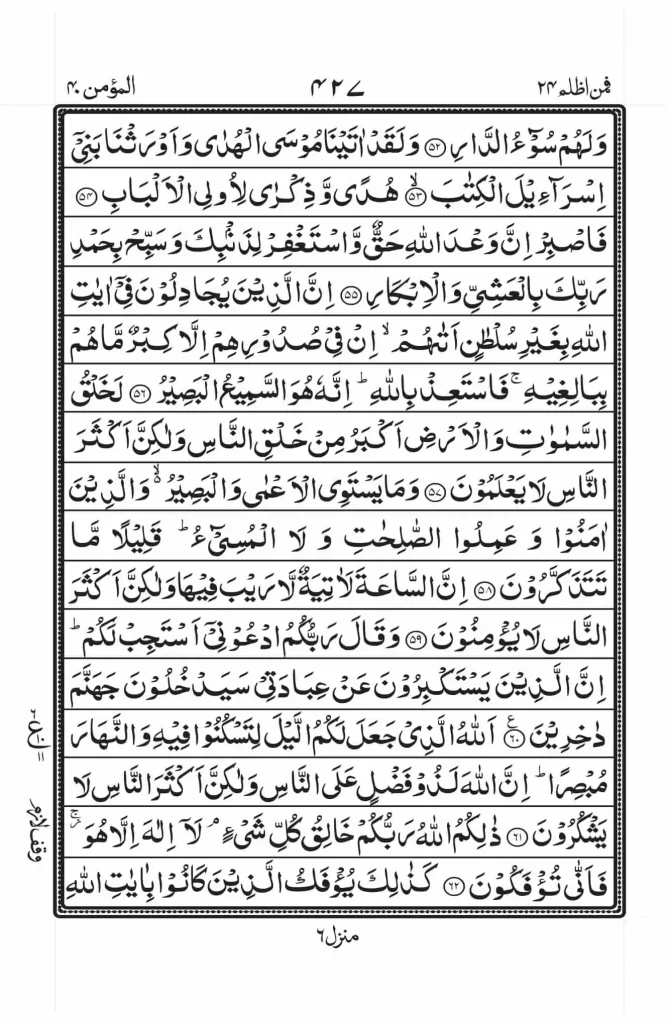 فمن اظلم ٢٤ ٤٢٧ المؤمن ٤٠
وَلَهُمْ سُوْٓءُ الدَّارِ ﴿۵۲﴾ وَلَقَدْ اٰتَيْنَا مُوْسَى الْهُدٰى وَاَوْرَثْنَا بَنِيْٓ
اِسْرَآءِيْلَ الْكِتٰبَ ﴿۵۳﴾ۙ هُدًى وَّذِكْرٰى لِاُولِى الْاَلْبَابِ ﴿۵۴﴾
فَاصْبِرْ اِنَّ وَعْدَ اللّٰهِ حَقٌّ وَّاسْتَغْفِرْ لِذَنْۢبِكَ وَسَبِّحْ بِحَمْدِ
رَبِّكَ بِالْعَشِىِّ وَالْاِبْكَارِ ﴿۵۵﴾ اِنَّ الَّذِيْنَ يُجَادِلُوْنَ فِىْٓ اٰيٰتِ
اللّٰهِ بِغَيْرِ سُلْطٰنٍ اَتٰٮهُمْۙ اِنْ فِىْ صُدُوْرِهِمْ اِلَّا كِبْرٌ مَّا هُمْ
بِبَالِغِيْهِۚ فَاسْتَعِذْ بِاللّٰهِؕ اِنَّهٗ هُوَ السَّمِيْعُ الْبَصِيْرُ ﴿۵۶﴾ لَخَلْقُ
السَّمٰوٰتِ وَالْاَرْضِ اَكْبَرُ مِنْ خَلْقِ النَّاسِ وَلٰكِنَّ اَكْثَرَ
النَّاسِ لَا يَعْلَمُوْنَ ﴿۵۷﴾ وَمَا يَسْتَوِى الْاَعْمٰى وَالْبَصِيْرُ ۙ وَالَّذِيْنَ
اٰمَنُوْا وَ عَمِلُوا الصّٰلِحٰتِ وَ لَا الْمُسِىْٓءُؕ قَلِيْلًا مَّا
تَتَذَكَّرُوْنَ ﴿۵۸﴾ اِنَّ السَّاعَةَ لَاٰتِيَةٌ لَّا رَيْبَ فِيْهَا وَلٰكِنَّ اَكْثَرَ
النَّاسِ لَا يُؤْمِنُوْنَ ﴿۵۹﴾ وَقَالَ رَبُّكُمُ ادْعُوْنِىْٓ اَسْتَجِبْ لَكُمْؕ
اِنَّ الَّذِيْنَ يَسْتَكْبِرُوْنَ عَنْ عِبَادَتِىْ سَيَدْخُلُوْنَ جَهَنَّمَ
دٰخِرِيْنَ ﴿۶۰﴾ۧ اَللّٰهُ الَّذِىْ جَعَلَ لَكُمُ الَّيْلَ لِتَسْكُنُوْا فِيْهِ وَالنَّهَارَ
مُبْصِرًاؕ اِنَّ اللّٰهَ لَذُوْ فَضْلٍ عَلَى النَّاسِ وَلٰكِنَّ اَكْثَرَ النَّاسِ لَا
يَشْكُرُوْنَ ﴿۶۱﴾ ذٰلِكُمُ اللّٰهُ رَبُّكُمْ خَالِقُ كُلِّ شَىْءٍۘ لَاۤ اِلٰهَ اِلَّا هُوَۚ
فَاَنّٰى تُؤْفَكُوْنَ ﴿۶۲﴾ كَذٰلِكَ يُؤْفَكُ الَّذِيْنَ كَانُوْا بِاٰيٰتِ اللّٰهِ
وقف لازم
منزل ٦